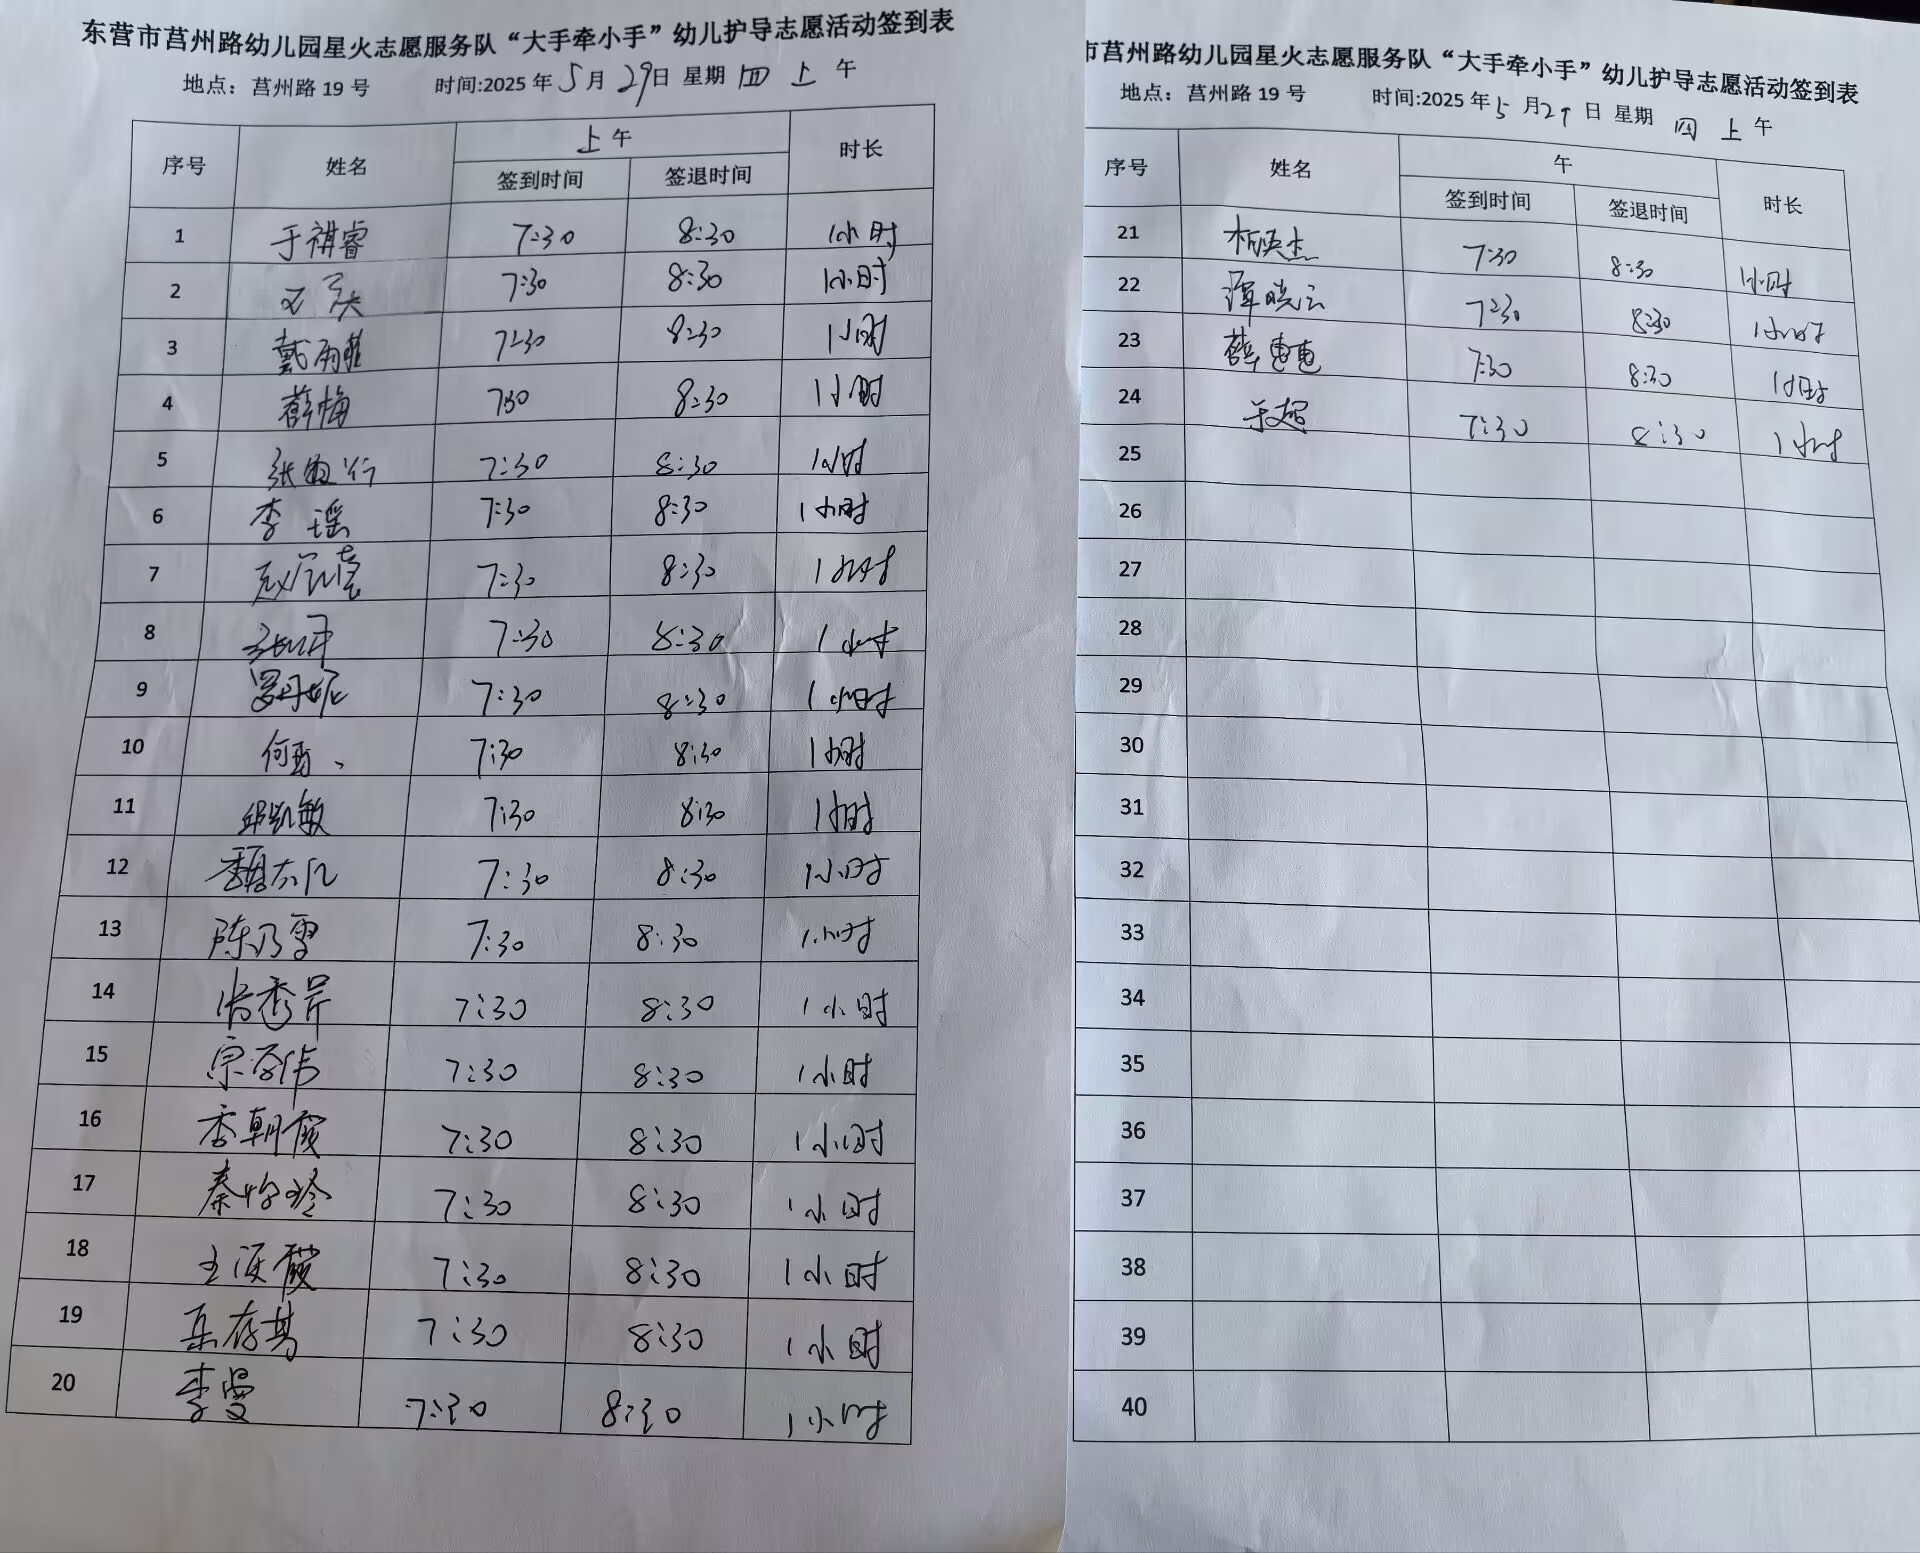 东营市莒州路幼儿园星火志愿服务队“大手牵小手”幼儿护导志愿活动签到表
地点：莒州路 19 号 时间:2025 年 5 月 29 日 星期 四 上 午
序号 姓名 上 午 时长
签到时间 签退时间
1 于祺睿 7:30 8:30 1小时
2 7:30 8:30 1小时
3 戴雨 7:30 8:30 1小时
4 薛梅 7:30 8:30 1小时
5 张 行 7:30 8:30 1小时
6 李 瑶 7:30 8:30 1小时
7 赵 7:30 8:30 1小时
8 张 7:30 8:30 1小时
9 罗丹妮 7:30 8:30 1小时
10 何 7:30 8:30 1小时
11 邱凯敏 7:30 8:30 1小时
12 7:30 8:30 1小时
13 陈乃雪 7:30 8:30 1小时
14 张秀芹 7:30 8:30 1小时
15 宗 伟 7:30 8:30 1小时
16 李朝霞 7:30 8:30 1小时
17 秦怡玲 7:30 8:30 1小时
18 王 霞 7:30 8:30 1小时
19 7:30 8:30 1小时
20 李曼 7:30 8:30 1小时
市莒州路幼儿园星火志愿服务队“大手牵小手”幼儿护导志愿活动签到表
地点：莒州路 19 号 时间:2025 年 5 月 29 日 星期 四 上 午
序号 姓名 午 时长
签到时间 签退时间
21 杰 7:30 8:30 1小时
22 谭晓云 7:30 8:30 1小时
23 薛 7:30 8:30 1小时
24 于超 7:30 8:30 1小时
25
26
27
28
29
30
31
32
33
34
35
36
37
38
39
40